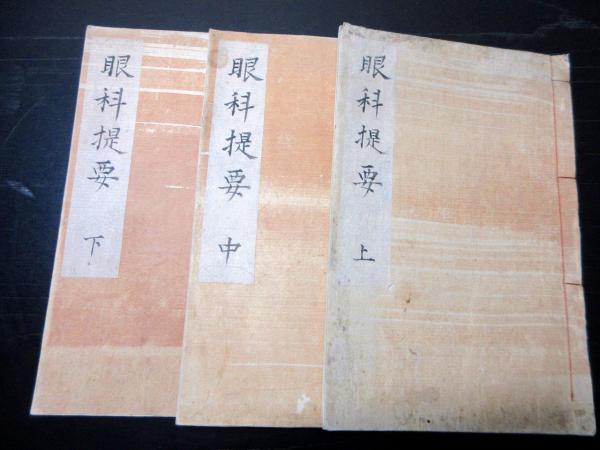 眼科提要 上
眼科提要 中
眼科提要 下